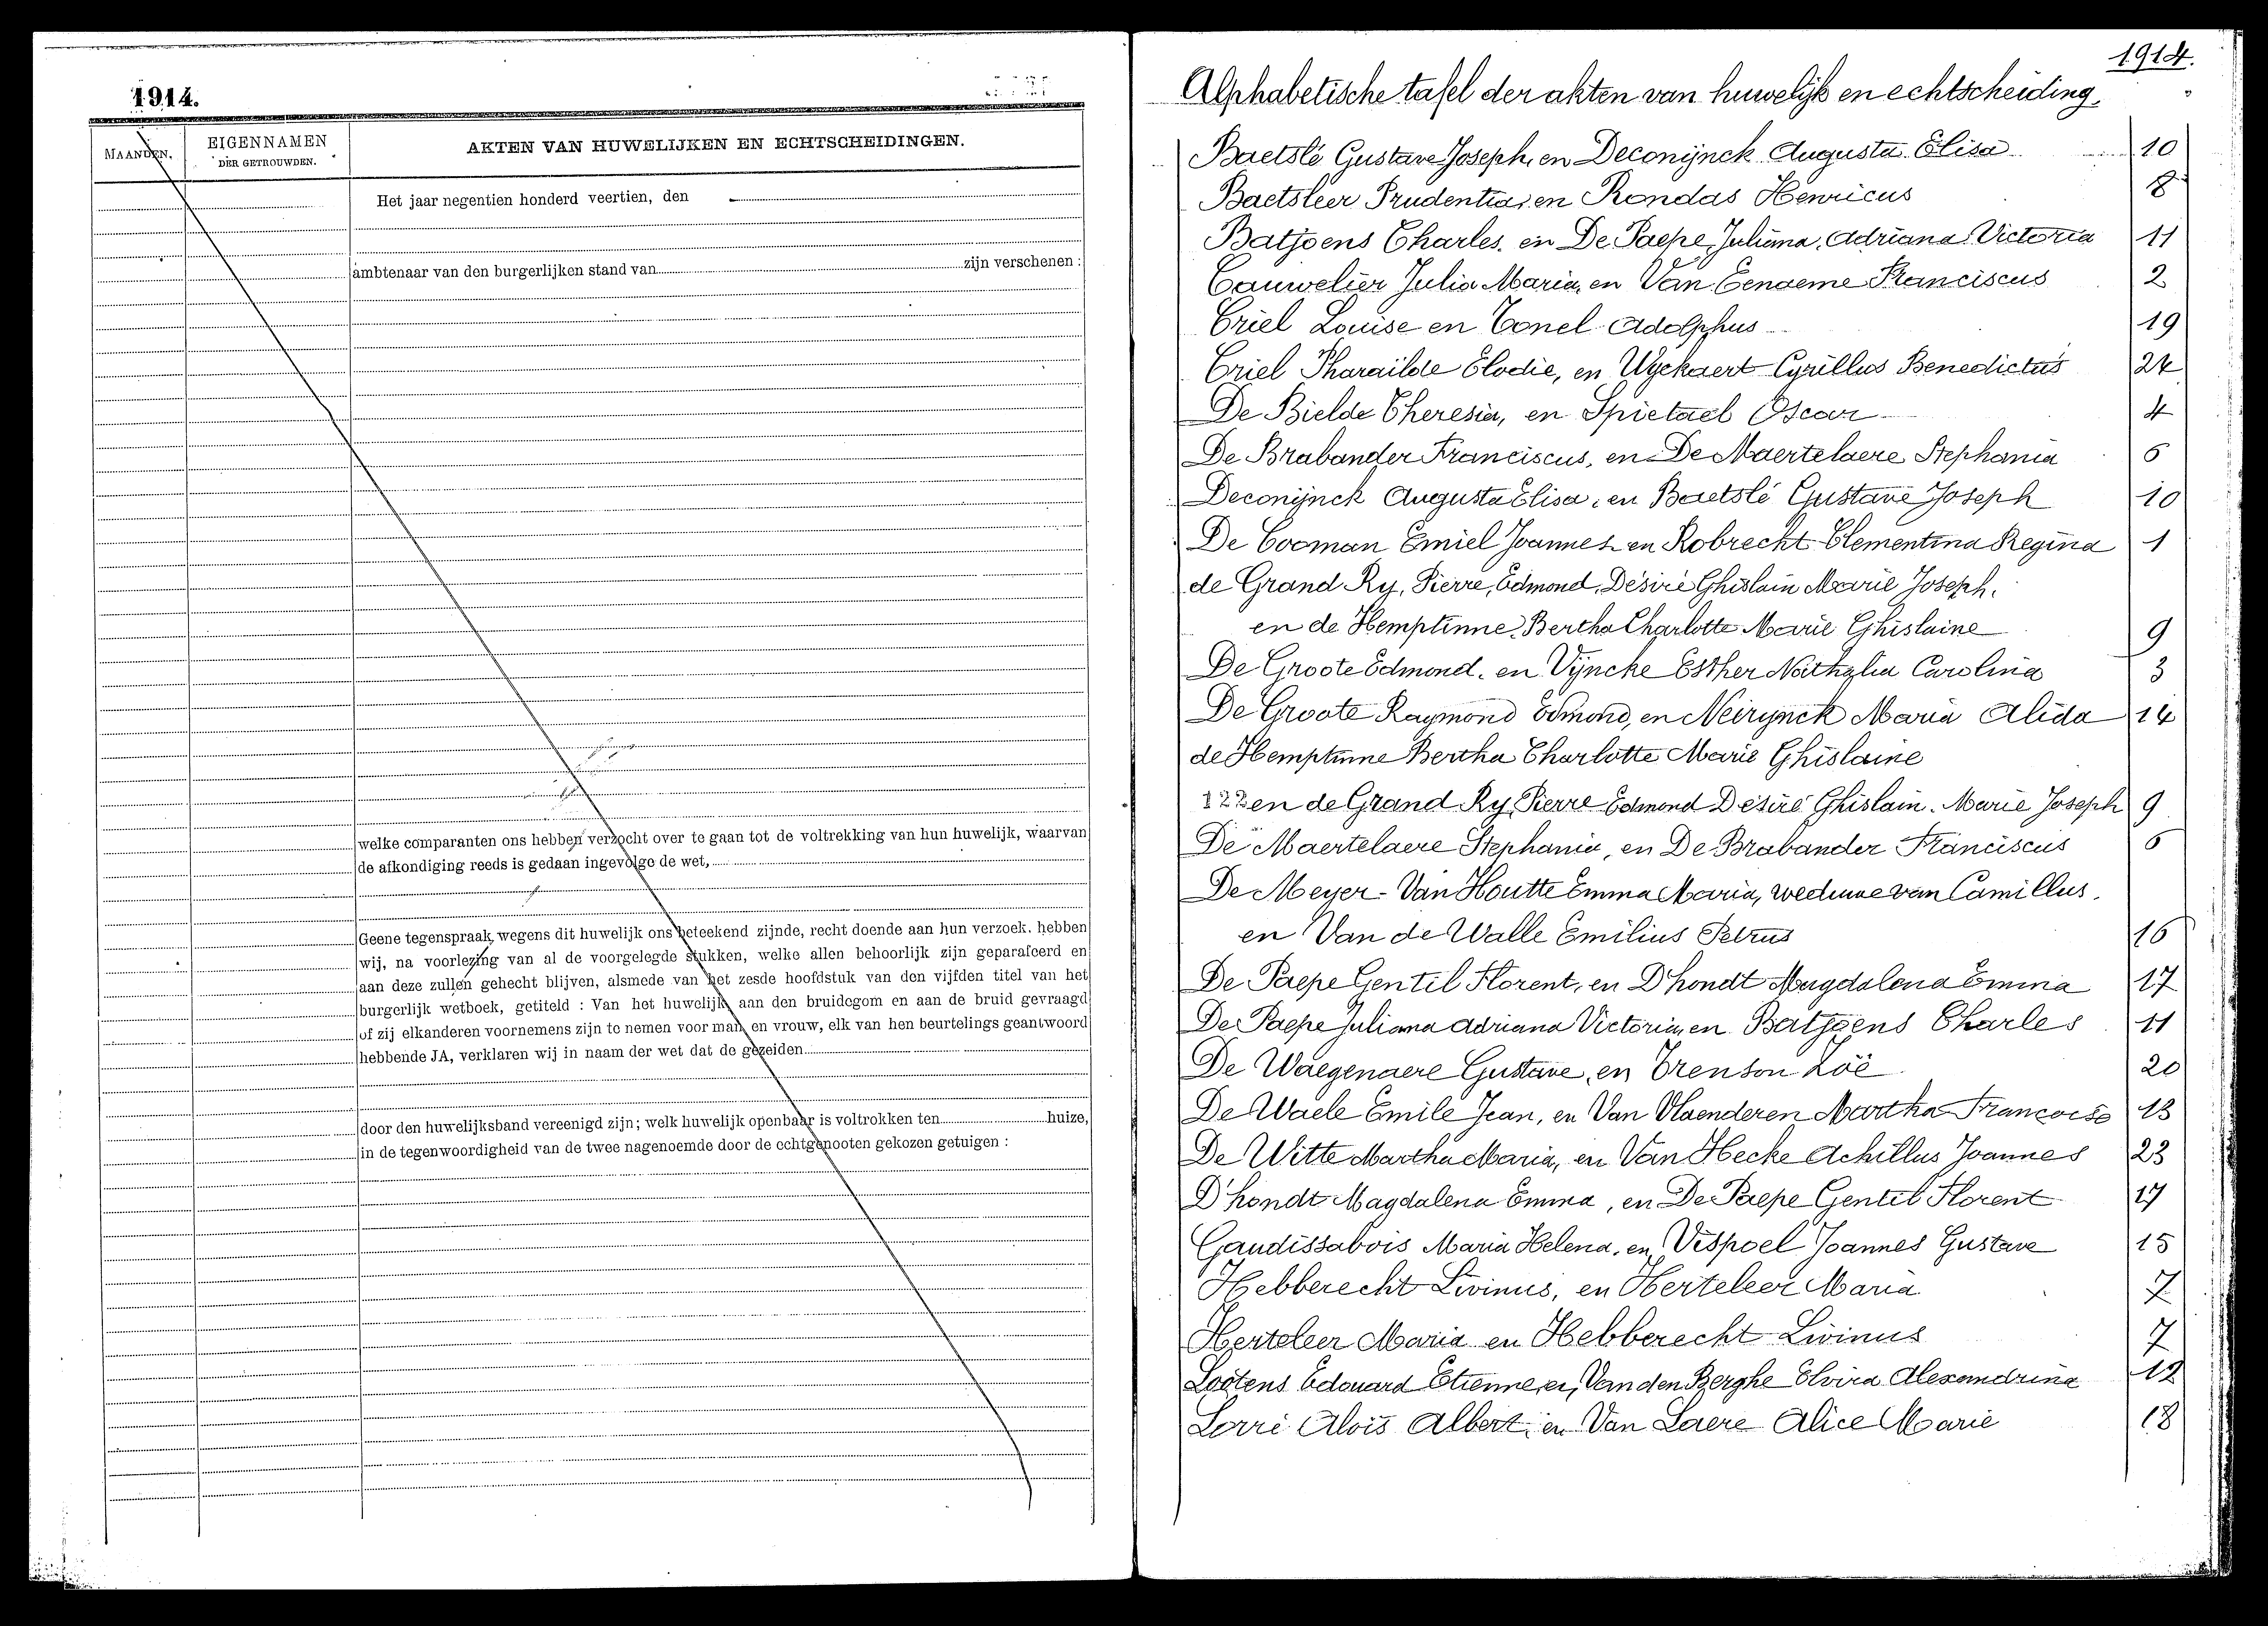 1914.
MAANDEN.
EIGENNAMEN
DER GETROUWDEN.
AKTEN VAN HUWELIJKEN EN ECHTSCHEIDINGEN.
Het jaar negentien honderd veertien, den
ambtenaar van den burgerlijken stand van zijn verschenen :
welke comparanten ons hebben verzocht over te gaan tot de voltrekking van hun huwelijk, waarvan
de afkondiging reeds is gedaan ingevolge de wet,
Geene tegenspraak wegens dit huwelijk ons beteekend zijnde, recht doende aan hun verzoek. hebben
wij, na voorlezing van al de voorgelegde stukken, welke allen behoorlijk zijn geparafeerd en
aan deze zullen gehecht blijven, alsmede van het zesde hoofdstuk van den vijfden titel van het
burgerlijk wetboek, getiteld : Van het huwelijk, aan den bruidegom en aan de bruid gevraagd
of zij elkanderen voornemens zijn te nemen voor man en vrouw, elk van hen beurtelings geantwoord
hebbende JA, verklaren wij in naam der wet dat de gezeiden
door den huwelijksband vereenigd zijn; welk huwelijk openbaar is voltrokken ten huize,
in de tegenwoordigheid van de twee nagenoemde door de echtgenooten gekozen getuigen :
1914.
Alphabetische tafel der akten van huwelijk en echtscheiding.
Baetslé Gustave Joseph, en Deconijnck Augusta Elisa 10
Baetsleer Prudentia, en Rondas Henricus 8
Batjoens Charles, en De Paepe Juliana, Adriana Victoria 11
Cauwelier Julia Maria, en Van Eenaeme Franciscus 2
Criel Louise en Conel Adolphus 19
Criel Pharaïlde Elodie, en Wyckaert Cyrillus Benedictus 24
De Bielde Theresia, en Spietael Oscar 4
De Brabander Franciscus, en De Maertelaere Stephania 6
Deconijnck Augusta Elisa, en Baetslé Gustave Joseph 10
De Cooman Emiel Joannes en Robrecht Clementina Regina 1
de Grand Ry, Pierre, Edmond, Désiré Ghislain Marie Joseph,
en de Hemptinne, Bertha Charlotte Marie Ghislaine 9
De Groote Edmond, en Vijncke Esther Nathalia Carolina 3
De Groote Raymond Edmond, en Neirynck Maria Alida 14
de Hemptinne Bertha Charlotte Marie Ghislaine
122 en de Grand Ry, Pierre Edmond Désiré Ghislain Marie Joseph 9
De Maertelaere Stephania, en De Brabander Franciscus 6
De Meyer - Van Houtte Emma Maria, weduwe van Camillus.
en Van de Walle Emilius Petrus 16
De Paepe Gentil Florent, en D'hondt Magdalena Emma 17
De Paepe Juliana Adriana Victoria, en Batjoens Charles 11
De Waegenaere Gustave, en Trenson Zoë 20
De Waele Emile Jean, en Van Vlaenderen Martha Françoise 13
De Witte Martha Maria, en Van Hecke Achillus Joannes 23
D'hondt Magdalena Emma, en De Paepe Gentil Florent 17
Gaudissabois Maria Helena, en Vispoel Joannes Gustave 15
Hebberecht Livinus, en Herteleer Maria 7
Herteleer Maria en Hebberecht Livinus 7
Lootens Edouard Etienne, en Van den Berghe Elvira Alexandrina 12
Lorré Aloïs Albert, en Van Laere Alice Marie 18